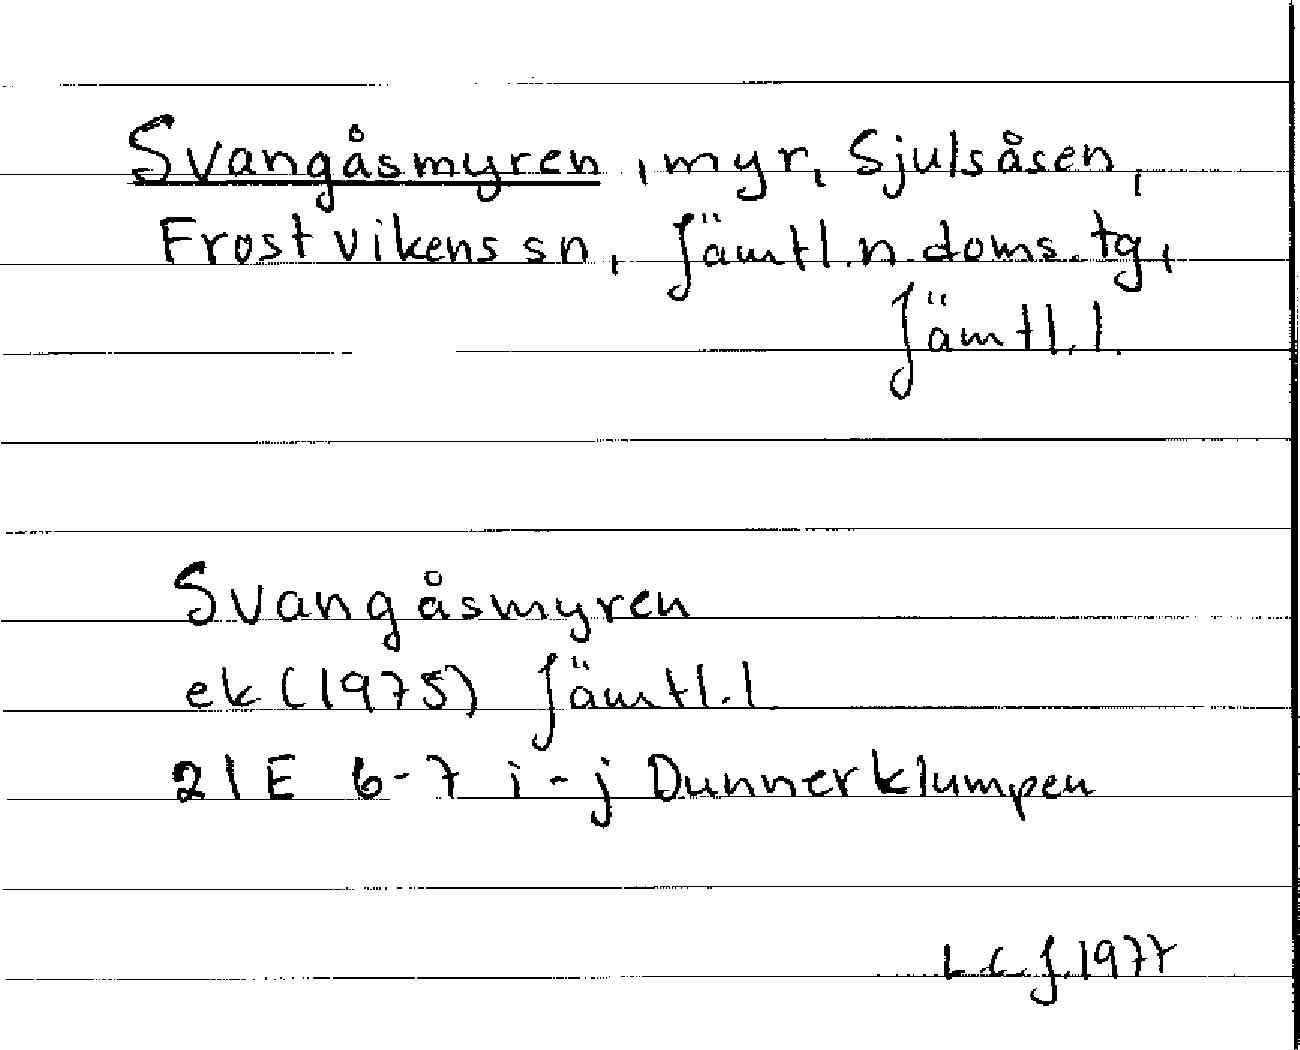 Svangåsmyren, myr, Sjulsåsen,
Frostvikens sn, Jämtl.n.doms.tg,
Jämtl.l.
Svangåsmyren
ek (1975) Jämtl.l.
21E 6-7 i-j Dunnerklumpen
LCJ.1977